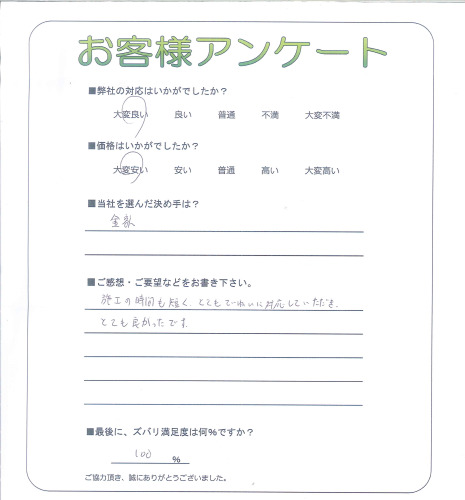 お客様アンケート
■弊社の対応はいかがでしたか？
大変良い 良い 普通 不満 大変不満
■価格はいかがでしたか？
大変安い 安い 普通 高い 大変高い
■当社を選んだ決め手は？
金額
■ご感想・ご要望などをお書き下さい。
施工の時間も短く、とてもていねいに対応していただき、
とても良かったです。
■最後に、ズバリ満足度は何％ですか？
100 ％
ご協力頂き、誠にありがとうございました。